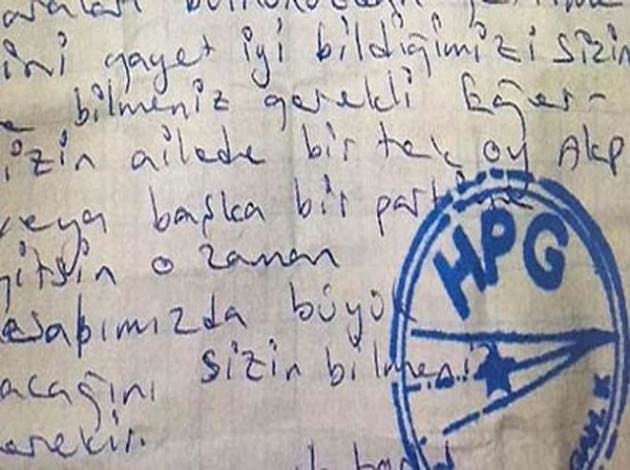 ini gayet iyi bildiğimizi sizin
bilmeniz gerekli Eğer-
izin ailede bir tek oy Akp
veya başka bir partiye
gitsin o zaman
esabımızda büyük
acağını sizin bilmeniz
erekir.
HPG